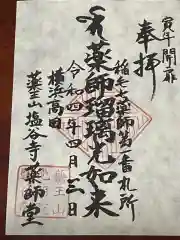 寅年開扉
奉拝
稲毛七薬師第一番札所
薬師瑠璃光如来
令和四年四月三日
横浜高田
薬王山塩谷寺薬師堂